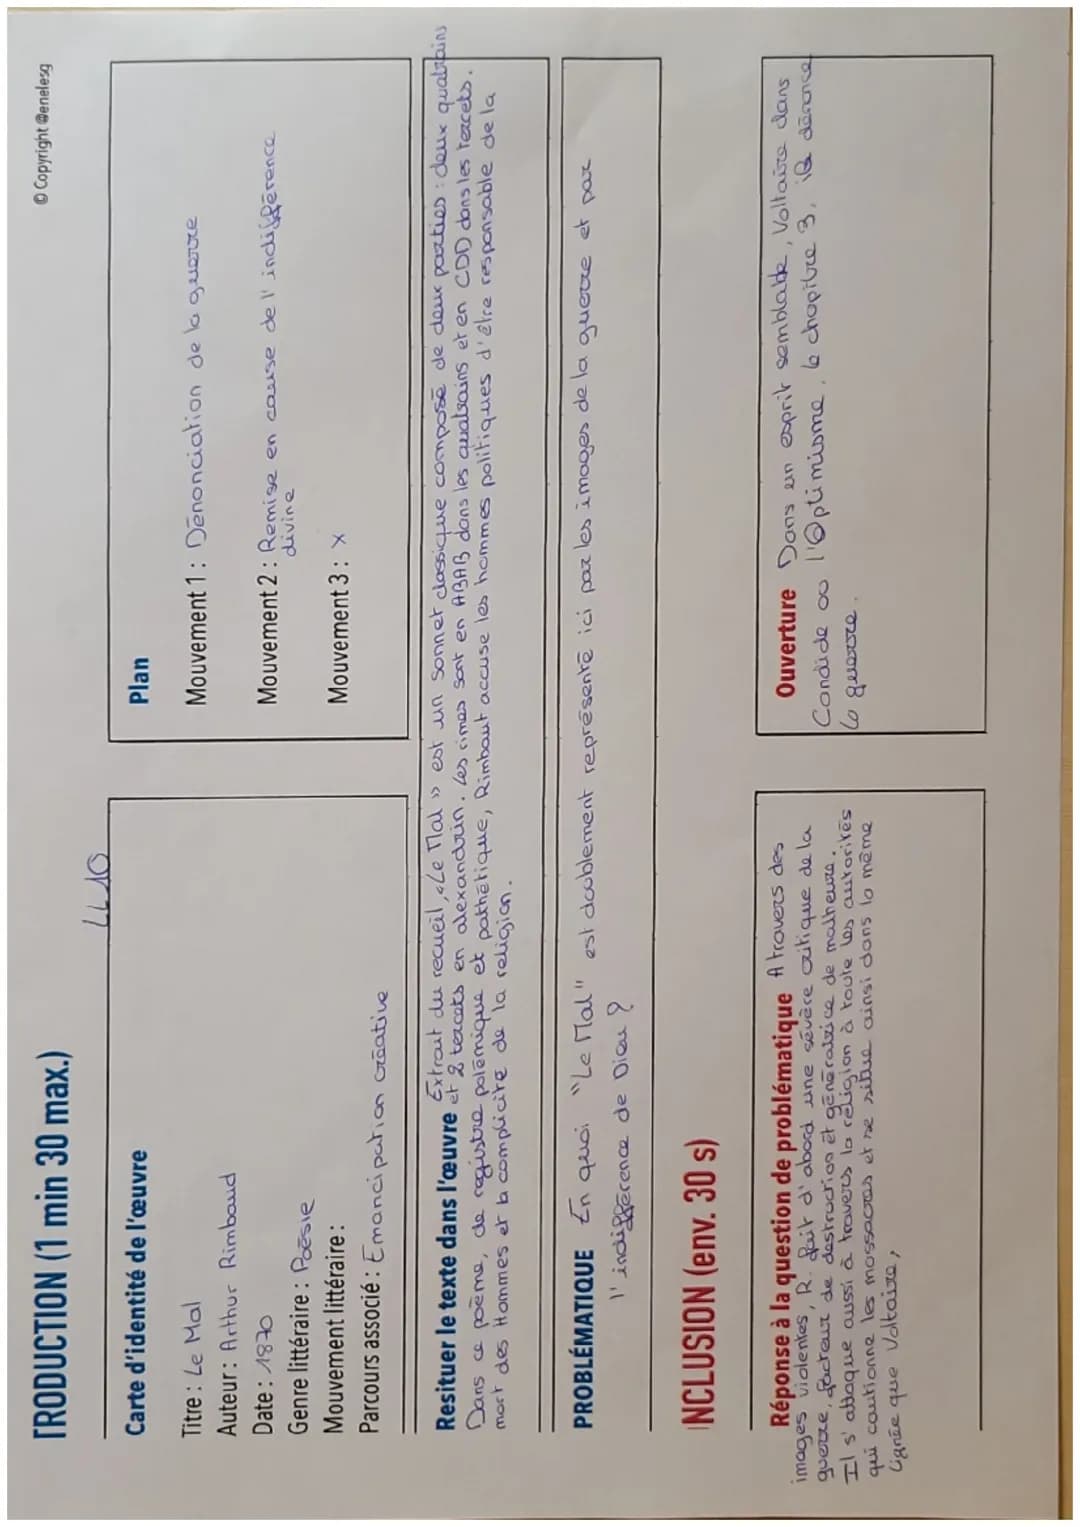 TRODUCTION (1 min 30 max.)
© Copyright @enelesg
LL10
Carte d'identité de l'œuvre
Titre : Le Mal
Auteur : Arthur Rimbaud
Date : 1870
Genre littéraire : Poësie
Mouvement littéraire :
Parcours associé : Emancipation créative
Plan
Mouvement 1 : Dénonciation de la guerre
Mouvement 2 : Remise en cause de l'indifférence
divine
Mouvement 3 : X
Resituer le texte dans l'œuvre Extrait du recueil, «Le Mal» est un sonnet classique composé de deux parties : deux quatrains
et 2 tercets en alexandrin. Les rimes sont en ABAB dans les quatrains et en CDD dans les tercets.
Dans ce poème, de registre polémique et pathétique, Rimbaut accuse les hommes politiques d'être responsable de la
mort des Hommes et la complicité de la religion.
PROBLÉMATIQUE En quoi "Le Mal" est doublement représenté ici par les images de la guerre et par
l'indifférence de Dieu ?
NCLUSION (env. 30 s)
Réponse à la question de problématique A travers des
images violentes, R. fait d'abord une sévère critique de la
guerre, facteur de destruction et génératrice de malheurs.
Il s'attaque aussi à travers la religion à toute les autorités
qui cautionne les massacres et se situe ainsi dans la même
lignée que Voltaire,
Ouverture Dans un esprit semblable, Voltaire dans
Candide ou l'Optimisme, le chapitre 3, il dénonce
la guerre.